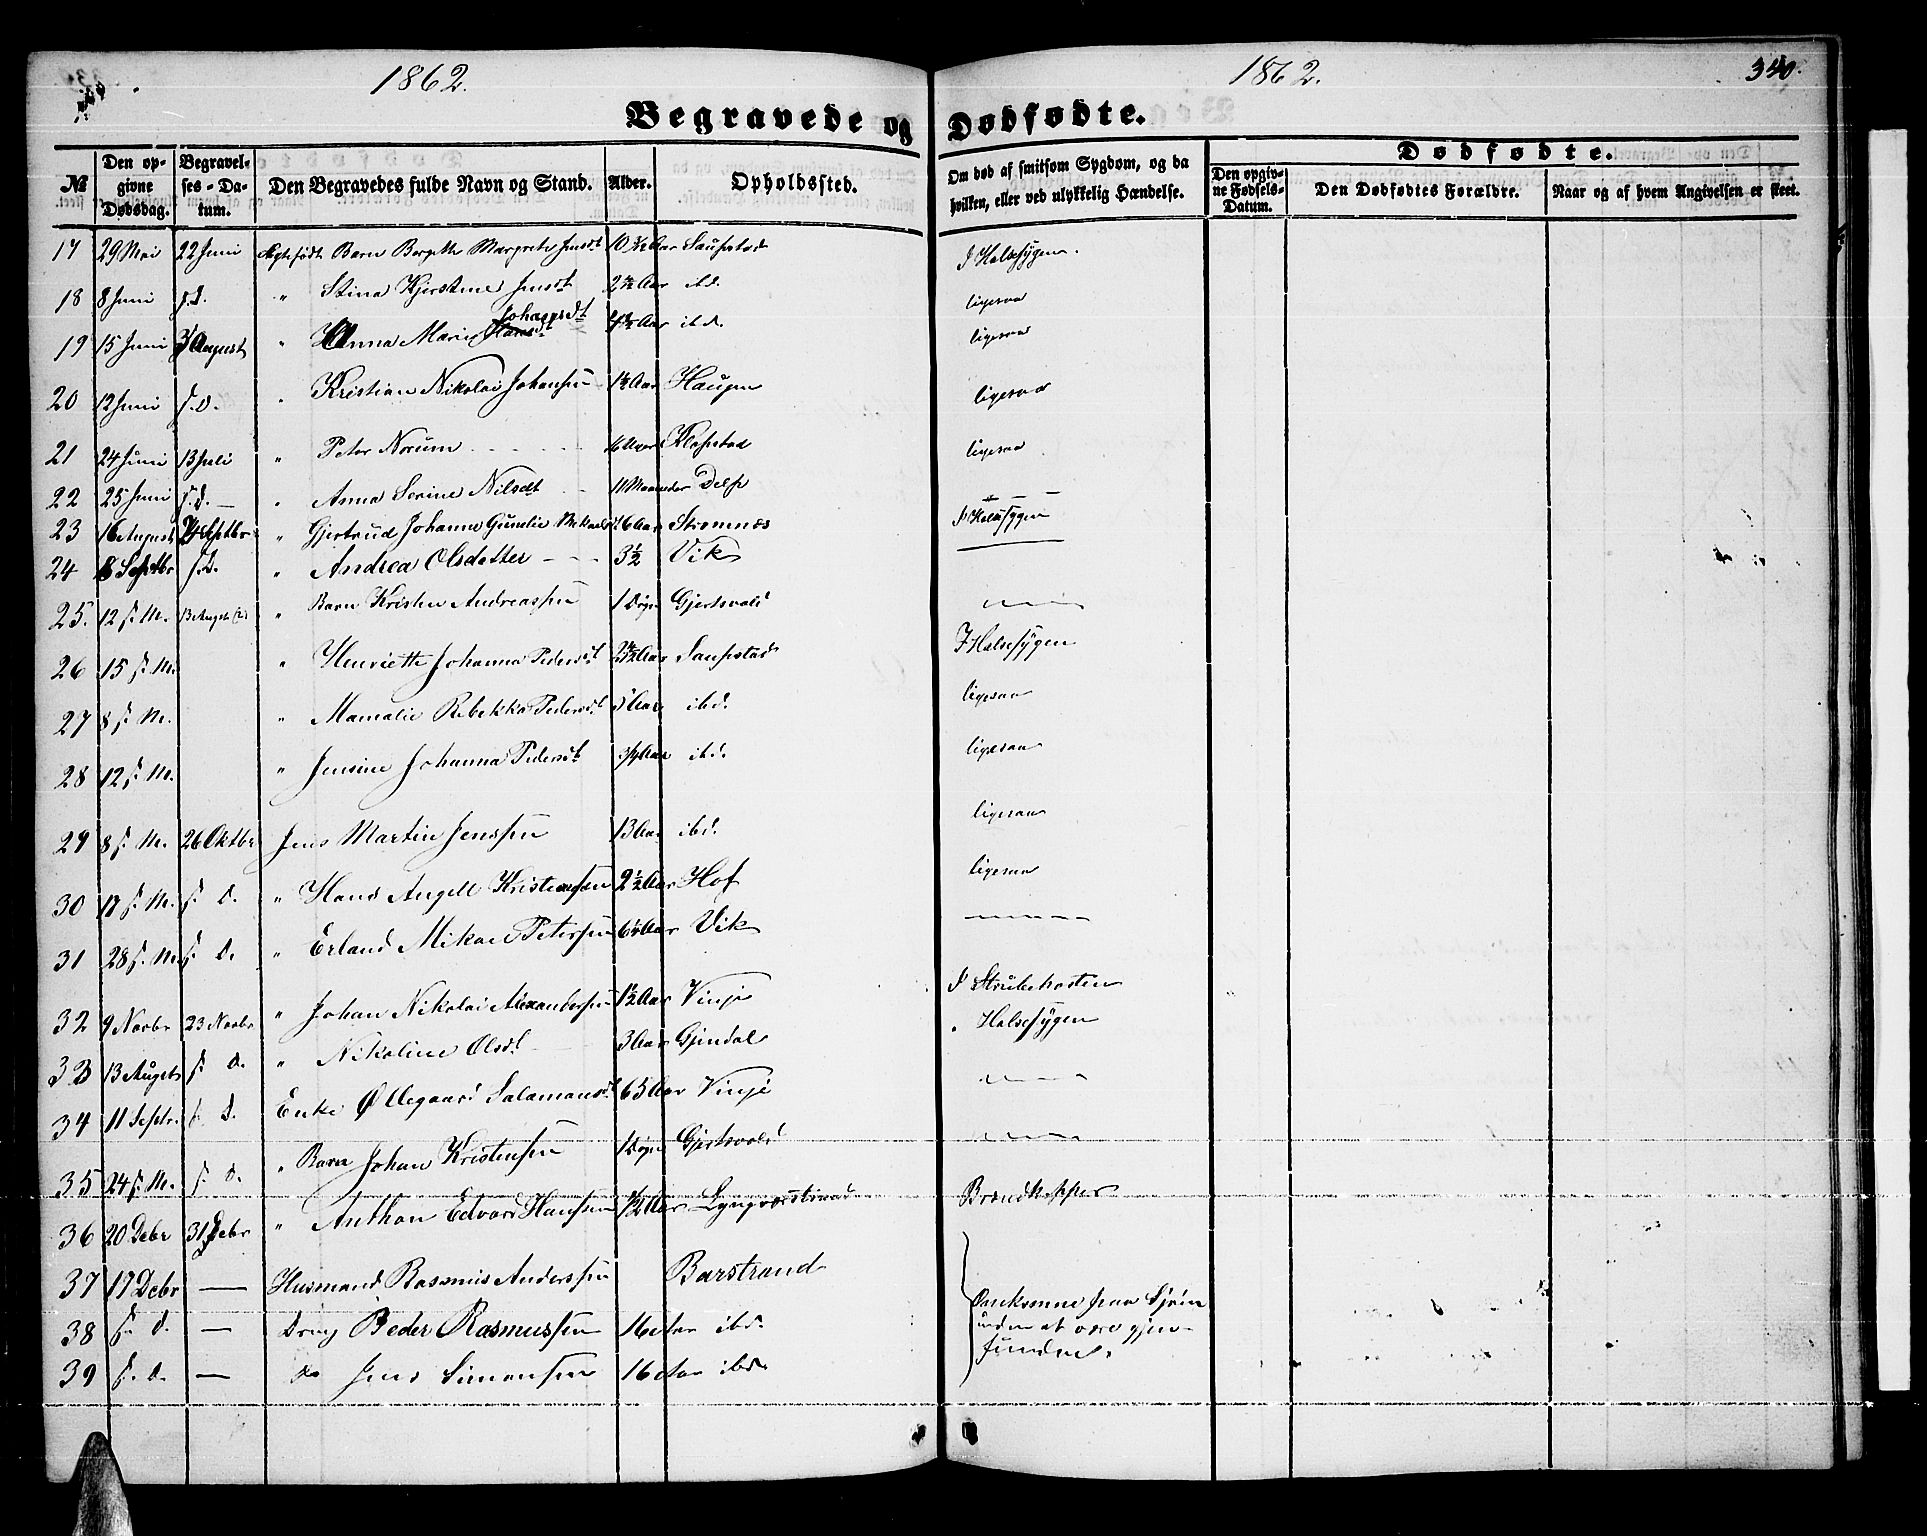 1862.
1862.
340.
Begravede og Dødfødte.
Dødfødte.
№
Den opgivne Dødsdag.
Begravelses-Datum.
Den Begravedes fulde Navn og Stand.
Alder.
Opholdssted.
Om død af smitsom Sygdom, og da hvilken, eller ved ulykkelig Hændelse.
Den opgivne Fødsels-Datum.
Den Dødfødtes Forældre.
Naar og af hvem Angivelsen er skeet.
17 29 Mai 22 Juni Ægtefødt Barn Margrete Jensdt 10 Aar Saupstad I Halssygen.
18 8 Juni s. D. " Stina Kjerstine Jensdt 2 Aar ibd. ligesaa
19 15 Juni 3 August " Anna Marie Johansdt Aar ibd. ligesaa
20 12 Juni s. D. " Kristian Nikolai Johansen 1½ Aar Haugen ligesaa
21 24 Juni 13 Juli " Peter Norum Klopstad ligesaa
22 25 Juni s. D. " Anna Serine Nilsdt 11 Maaneder Delp
23 16 August Septbr " Gjertrud Johanna 6 Aar Strømnæs I Halssygen
24 8 Septbr s. D. " Andrea Olsdatter 3½ Vik
25. 12 s. M. " Barn Kristen Andreassen 1 Døgn Gjertsvold
26 15 s. M. " Henriette Johanna Pedersdt Aar Saupstad I Halssygen
27 8 s. M. " Rebekka Pedersdt Aar ibd. ligesaa
28 12 s. M. " Jensine Johanna Pedersdt Aar ibd. ligesaa
29 8 s. M. 26 Oktbr Jens Martin Jenssen 13 Aar ibd. ligesaa
30 17 s. M. s. D. " Hans Angell Kristensen 2½ Aar Hof ligesaa
31 28 s. M. s. D. " Erland Mikael Peterssen Aar Vik
32 9 Novbr 23 Novbr " Johan Nikolai Alexanderssen 1½ Aar Vinje I Strubehosten
33 13 Augst s. D. " Nikoline Olsdt 3 Aar Gjendal " Halssygen
34 11 Septr. s. D. Enke Ollegaard Salamonsdt 65 Aar Vinje
35 24 s. M. s. D. " Barn Johan Kristensen 1 Døgn Gjertsvold
36 20 Debr 31 Debr " Anthon Edvard Hanssen Aar Lyngværstrand Brandkopper
37 17 Debr — Husmand Rasmus Anderssen Barstrand
38 s. D. — Dreng Peder Rasmussen 16 Aar ibd. Omkomne paa Sjøen
uden at være gjen-
fundne.
39 s. D. — do Jens Simonsen 16 Aar ibd.